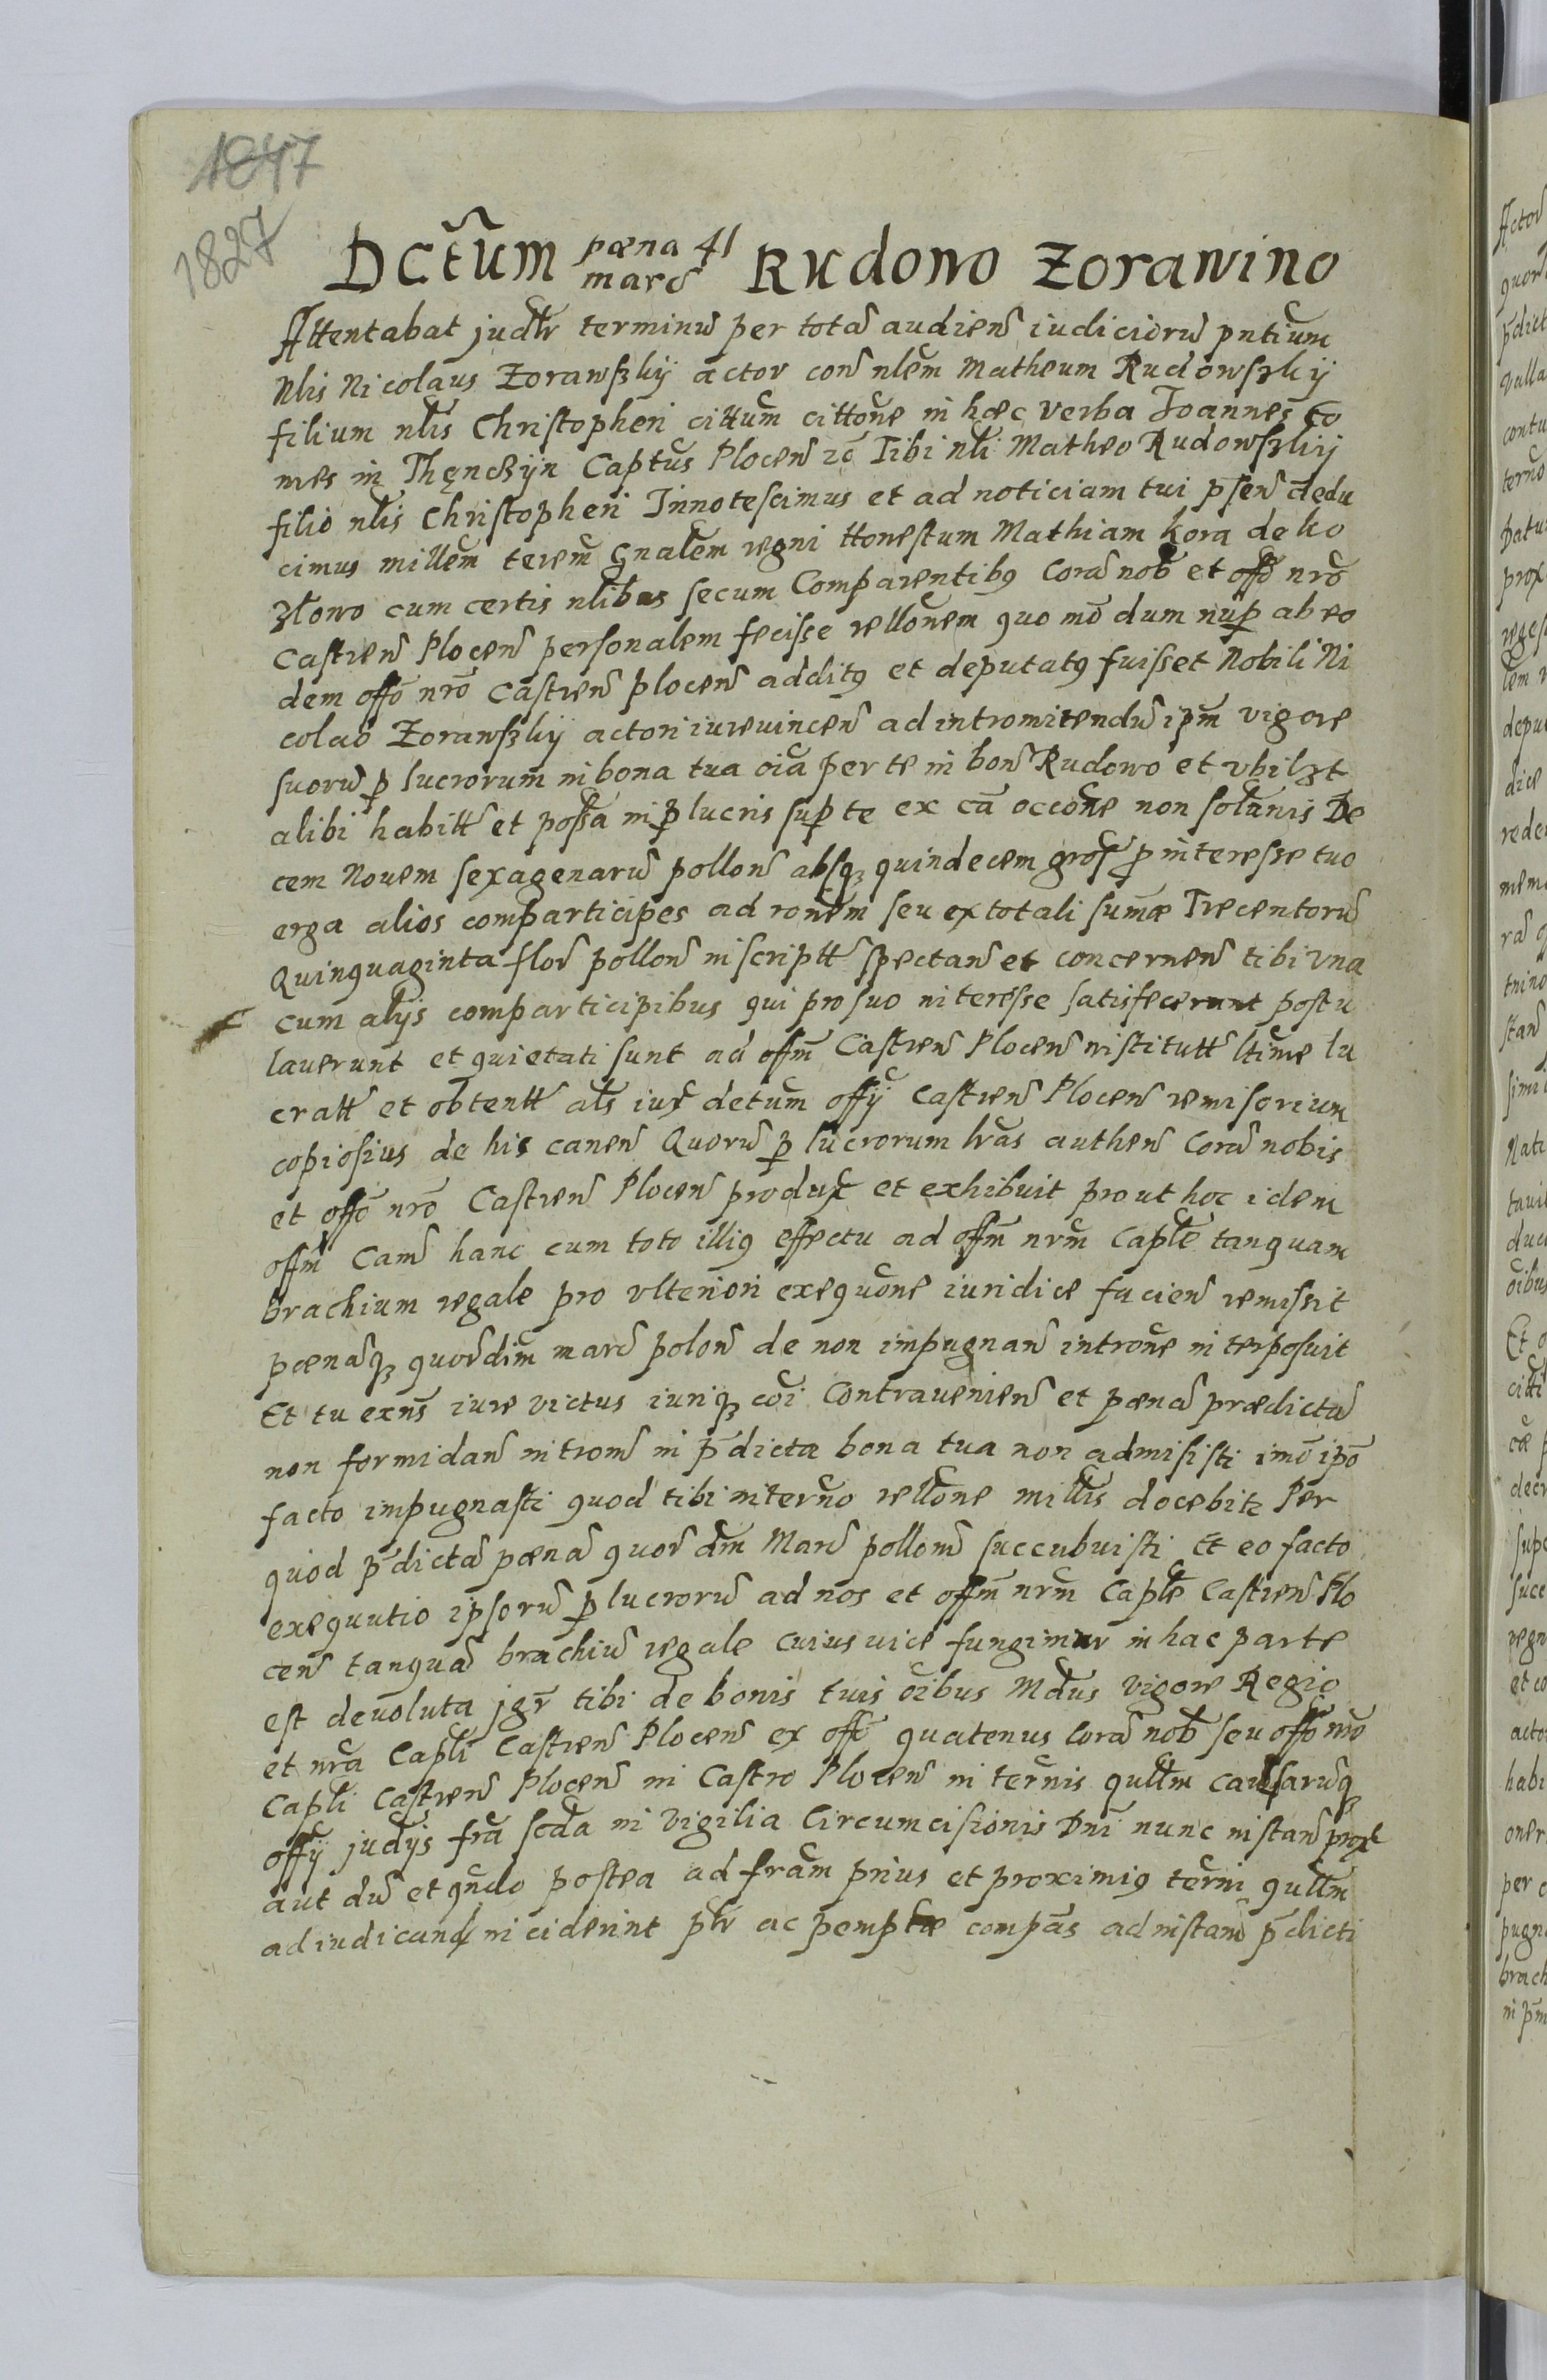 1847
1827
Dctūm pæna 41 marc̃ Rudowo Zorawino
Attentabat judtr terminū per totā audien̄ iudiciorū pntium
Nlis Nicolaus Zorawſzkÿ actor con̄ nlem Matheum Rudowſzkij
filium nlis Christopheri cittum cittone in hæc verba Joannes Co
mes in Thęnczÿn Captus Plocen̄ zc̄ Tibi nli Matheo Rudowſzkij
filio nlis Christopheri Innotescimus et ad noticiam tui p̄sen̄ dedu
cimus millem terem gnalem regni Honestum Mathiam Kora de Ko
zlowo cum certis nlibus secum Comparentibꝰ Corā nob̄ et offo nro
Castren̄ Plocen̄ personalem fecisse rellonem quo mō dum nup̱ ab eo
dem offo nro Castren̄ plocen̄ additꝰ et deputatꝰ fuisset Nobili Ni
colao Zorawſzkÿ actori iurevincen̄ ad intromitendū ipm vigore
suorū p̱ lucrorum in bona tua oia per te in bon̄ Rudowo et vbilzt
alibi habitt et possa in p̱ lucris sup̱ te ex cā occone non solanis De
cem Nouem sexagenarū pollon̄ absqꝫ quindecem gros̄ p̱ interesse tuo
erga alios comparticipes ad ronem seu ex totali sumæ Trecentorū
Quinquaginta flor̄ pollon̄ inscriptt spectan̄ et concernen̄ tibi vna
cum alijs comparticipibus qui pro suo interesse satisfecerunt postu
lauerunt et quietati sunt ad offm Castren̄ Plocen̄ institutt ltime lu
cratt et obtentt als iux̄ detum offÿ Castren̄ Plocen̄ remisorium
copiosius de his canen̄ Quorū p̱ lucrorum lras authen̄ Corā nobis
et offo nro Castren̄ Plocen̄ produx̄ et exhibuit prout hoc idem
offm Cam̄ hanc cum toto illiꝰ effectu ad offm nrm Caple tanquam
brachium regale pro vlteriori exequone iuridice facien̄ remissit
pænāqꝫ quordim marc̄ polon̄ de non impugnan̄ introne interposuit
Et tu exn̄s iure victus iuriqꝫ coi Contrauenien̄ et pænā prædictā
non formidan̄ introm̄ in p̄dicta bona tua non admisisti imō ipo
facto impugnasti quod tibi in terno rellone millis docebitꝫ Per
quod p̄dictā pænā quor dm Marc̄ pollon̄ succubuisti Et eo facto
exequutio ipsorū p̱ lucrorū ad nos et offm nrm Caple Castren̄ Plo
cen̄ tanquā brachiū regale cuius vice fungimur in hac parte
est deuoluta jgr̄ tibi de bonis tuis oibus Mdus Vigore Regio
et nra Capli Castren̄ Plocen̄ ex offo quatenus Corā nob̄ seu offo nro
Capli Castren̄ Plocen̄ in Castro Plocen̄ in ternis qullm causarūqꝫ
offÿ judijs fra scda in Vigilia Circumcisionis Dni nunc instan̄ prox̄
aut dū et qndo postea ad fram prius et proximiꝰ terni qullm
adiudicand inciderint ptr ac pempte compas ad instan̄ p̄dicti